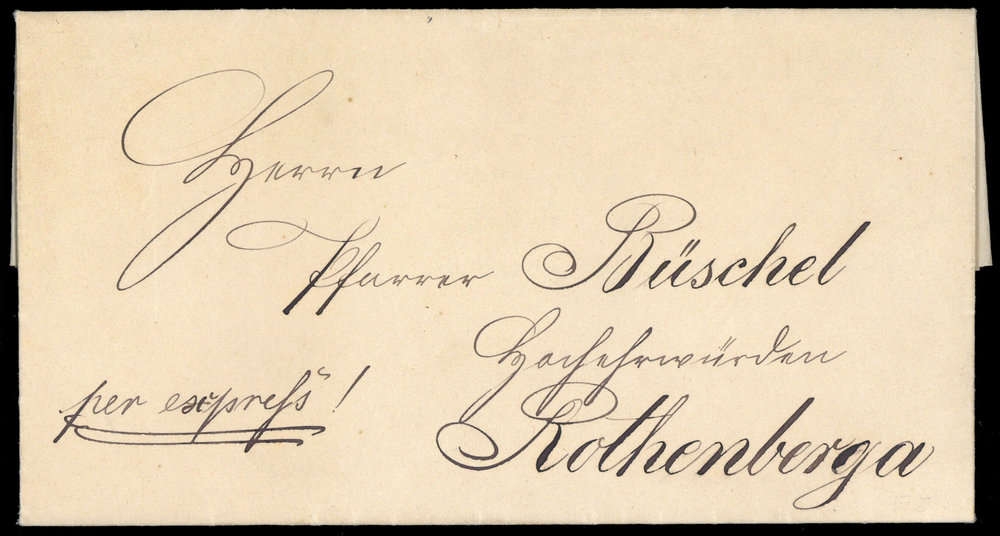 Herrn
Pfarrer Büschel
Hochehrwürden
per expreß!
Rothenberga